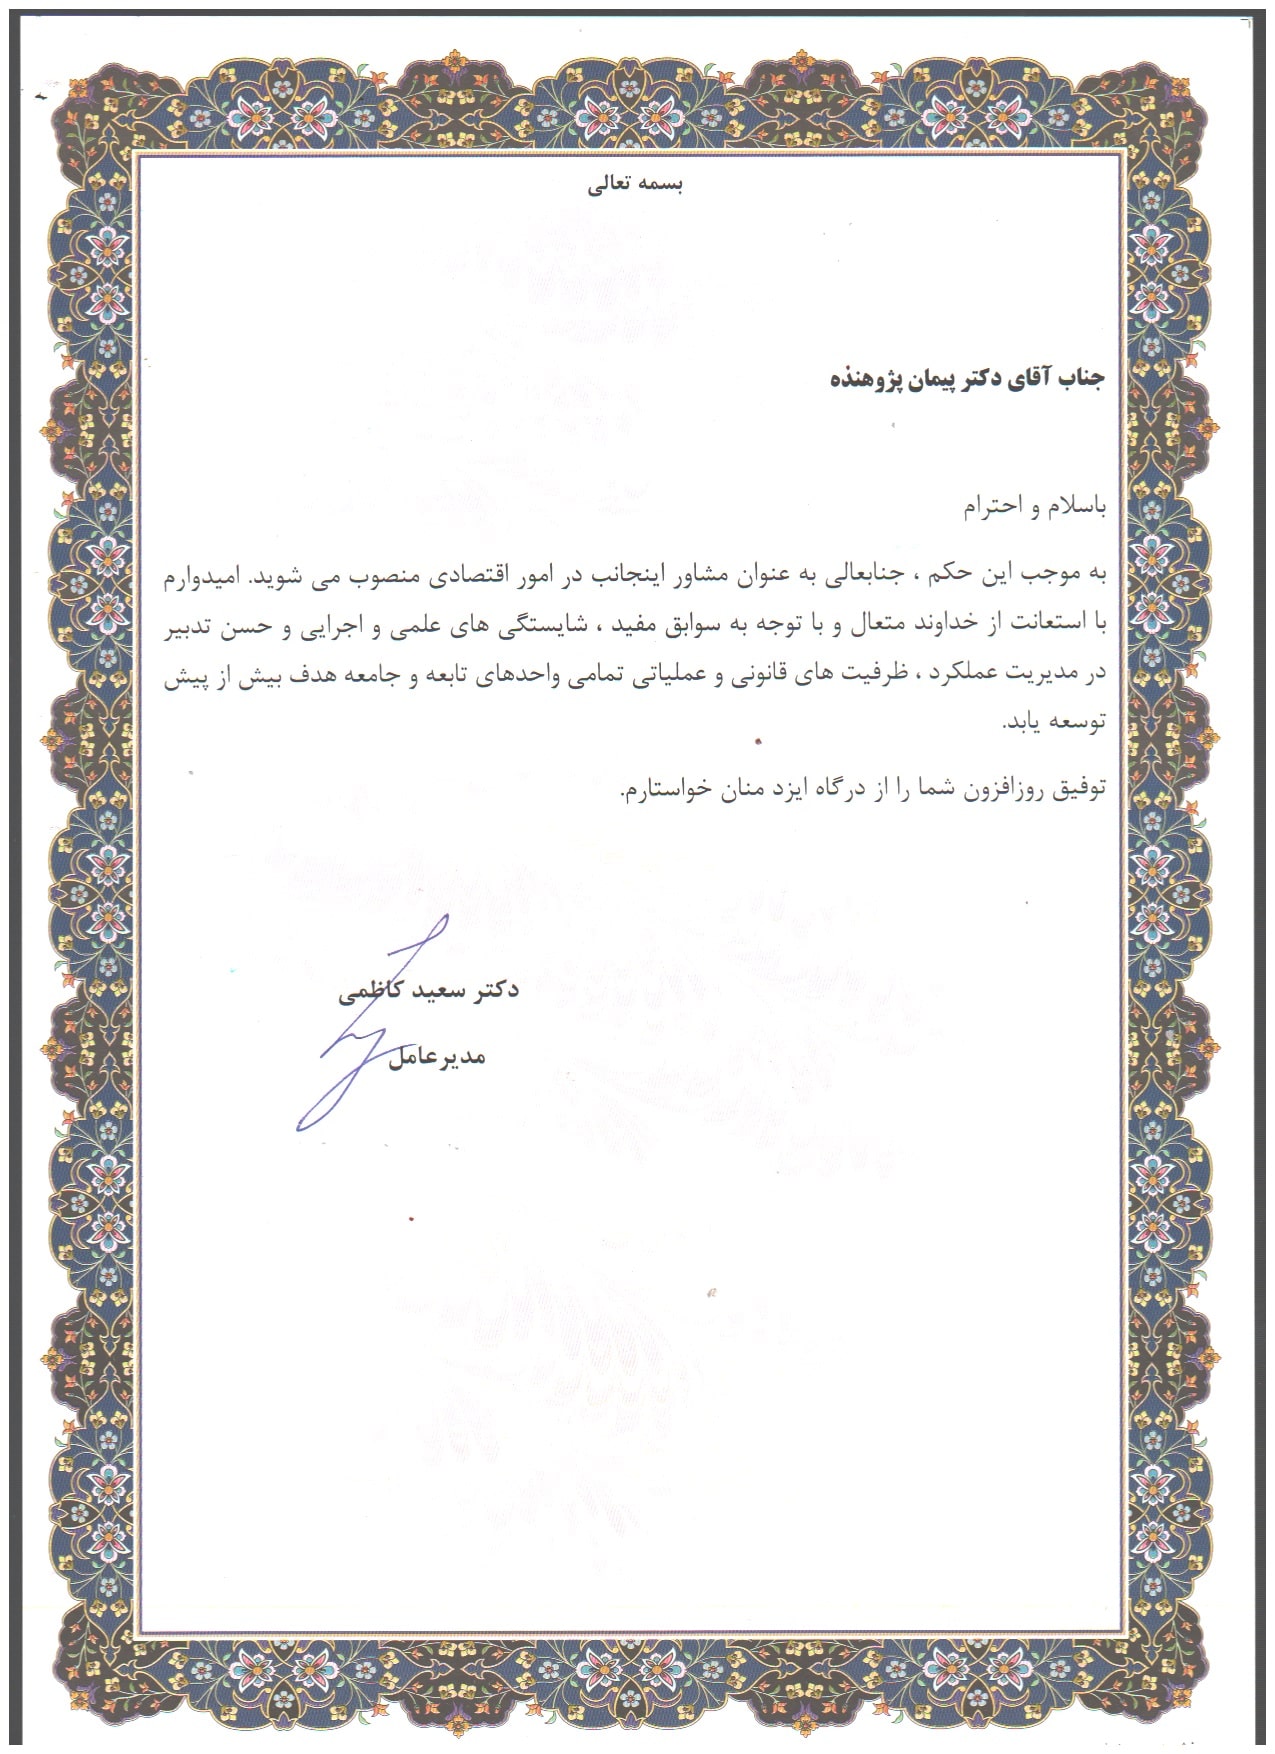 بسمه تعالی
جناب آقای دکتر پیمان پژوهنده
باسلام و احترام
به موجب این حکم ، جنابعالی به عنوان مشاور اینجانب در امور اقتصادی منصوب می شوید. امیدوارم
با استعانت از خداوند متعال و با توجه به سوابق مفید ، شایستگی های علمی و اجرایی و حسن تدبیر
در مدیریت عملکرد ، ظرفیت های قانونی و عملیاتی تمامی واحدهای تابعه و جامعه هدف بیش از پیش
توسعه یابد.
توفیق روزافزون شما را از درگاه ایزد منان خواستارم.
دکتر سعید کاظمی
مدیرعامل